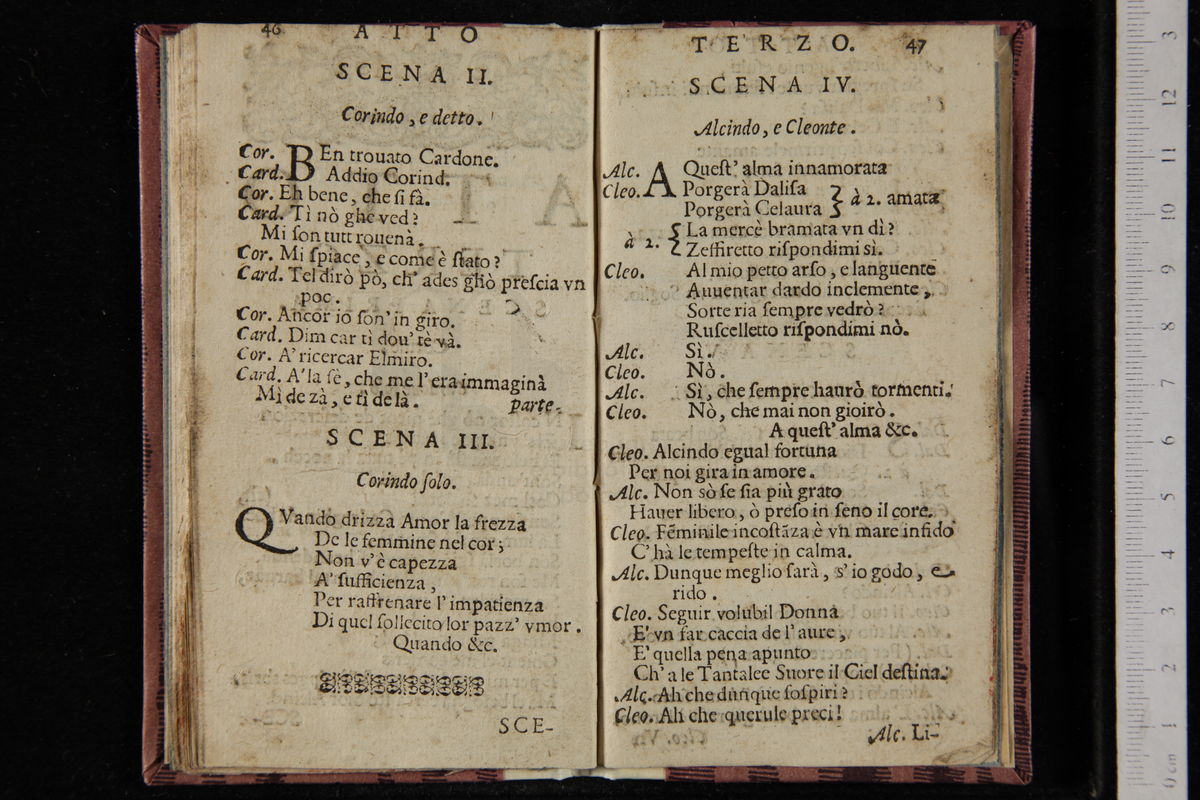 46 ATTO
SCENA II.
Corindo, e detto.
Cor. BEn trouato Cardone.
Card. Addio Corind.
Cor. Eh bene, che ſi fà.
Card. Tì nò ghe ved?
Mi ſon tutt rouenà.
Cor. Mi ſpiace, e come è ſtato?
Card. Tel dirò pò, ch' ades ghò preſcia vn
poc.
Cor. Ancor io ſon' in giro.
Card. Dim car tì dou' tè và.
Cor. A' ricercar Elmiro.
Card. A' la fè, che me l' era immaginà
Mì de zà, e tì de là. parte.
SCENA III.
Corindo ſolo.
QVando drizza Amor la frezza
De le femmine nel cor;
Non v' è capezza
A' ſufficienza,
Per raffrenare l' impatienza
Di quel ſollecito lor pazz' vmor.
Quando &c.
SCE-
TERZO. 47
SCENA IV.
Alcindo, e Cleonte.
Alc. A Queſt' alma innamorata
Cleo. Porgerà Daliſa
Porgerà Celaura } à 2. amata
à 2. { La mercè bramata vn dì?
Zeffiretto riſpondimi sì.
Cleo. Al mio petto arſo, e languente
Auuentar dardo inclemente,
Sorte ria ſempre vedrò?
Ruſcelletto riſpondimi nò.
Alc. Sì.
Cleo. Nò.
Alc. Sì, che ſempre haurò tormenti.
Cleo. Nò, che mai non gioirò.
A queſt' alma &c.
Cleo. Alcindo egual fortuna
Per noi gira in amore.
Alc. Non sò ſe ſia più grato
Hauer libero, ò preſo in ſeno il core.
Cleo. Fēminile incoſtāza è vn mare infido
C' hà le tempeſte in calma.
Alc. Dunque meglio ſarà, s' io godo, e
rido.
Cleo. Seguir volubil Donna
E' vn far caccia de l' aure,
E' quella pena apunto
Ch' a le Tantalee Suore il Ciel deſtina.
Alc. Ah che dunque ſoſpiri?
Cleo. Ah che querule preci!
Alc. Li-